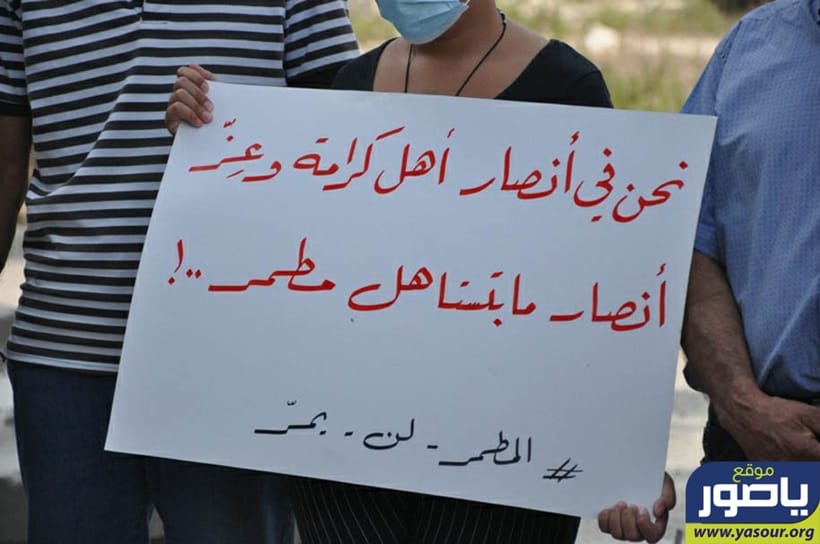 نحن في أنصار أهل كرامة وعِزّ
أنصار مابتستاهل مطمر..!
# المطمر - لن - يمرّ
موقع
ياصور
www.yasour.org